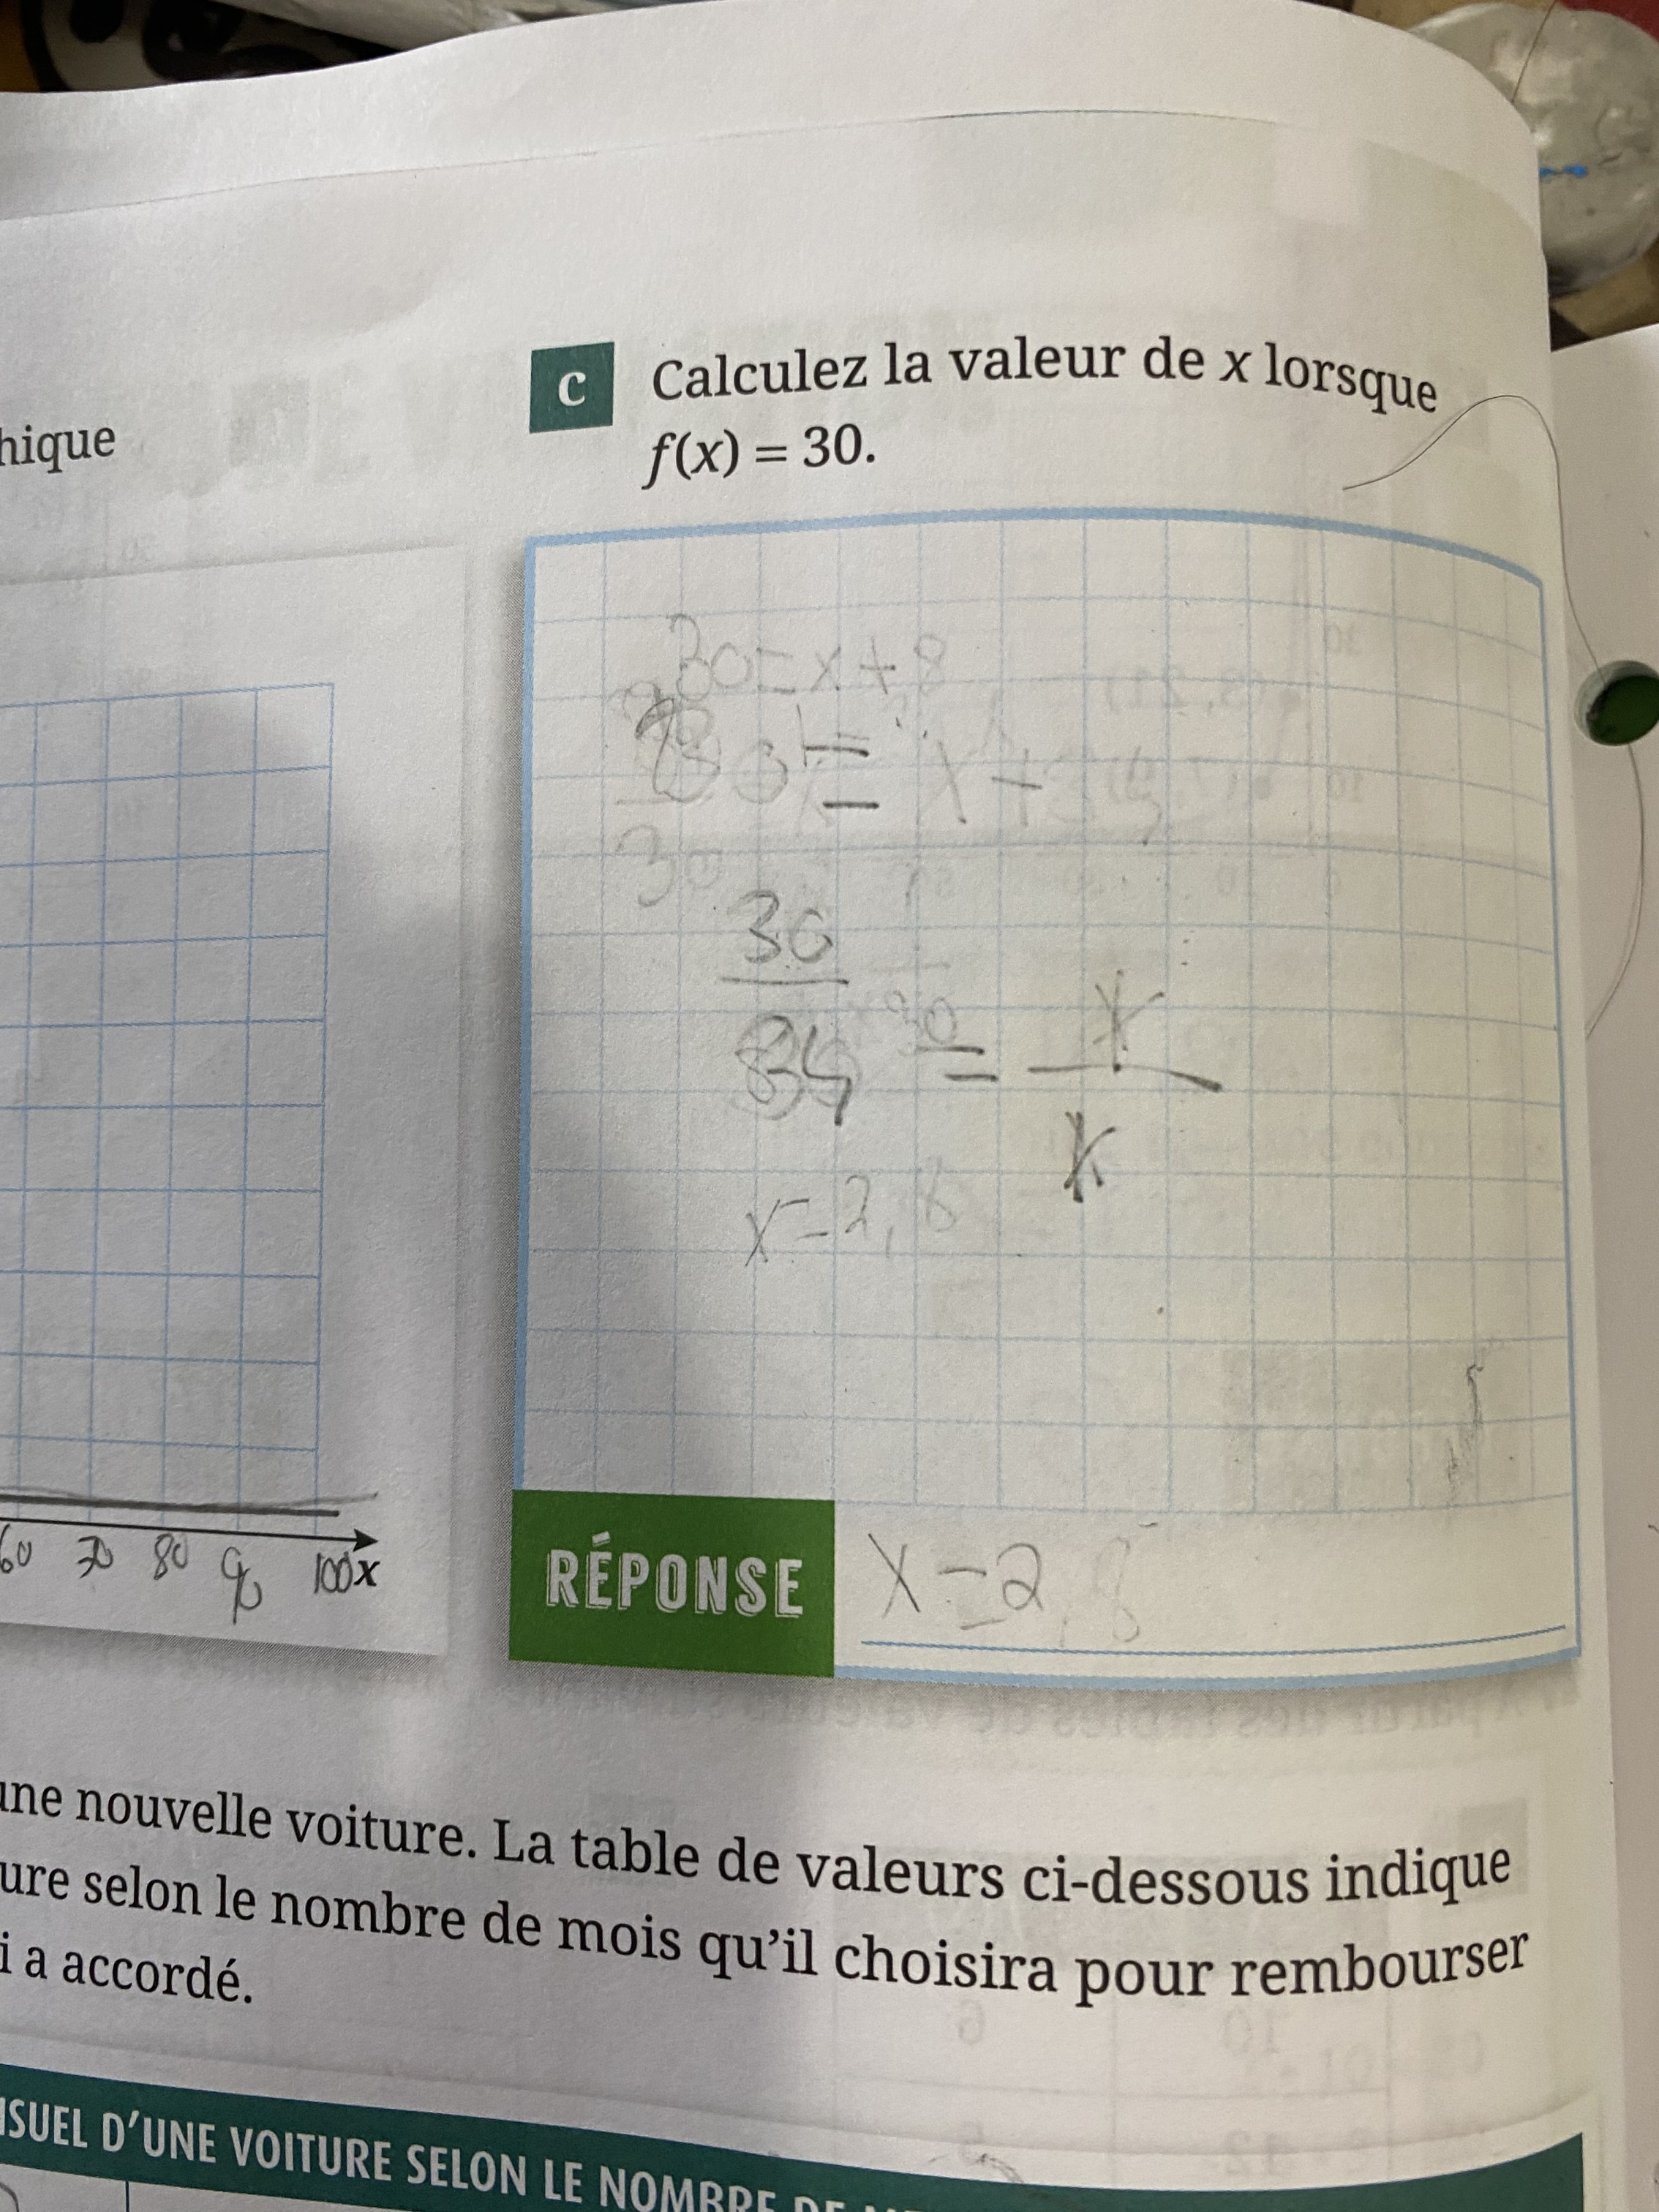 hique
C Calculez la valeur de x lorsque
f(x) = 30.
30 = x + 8
30
30
84
=
x
x
x = 2,8
60 70 80 90 100 x
RÉPONSE x = 2,8
une nouvelle voiture. La table de valeurs ci-dessous indique
ure selon le nombre de mois qu'il choisira pour rembourser
i a accordé.
SUEL D'UNE VOITURE SELON LE NOMBRE DE